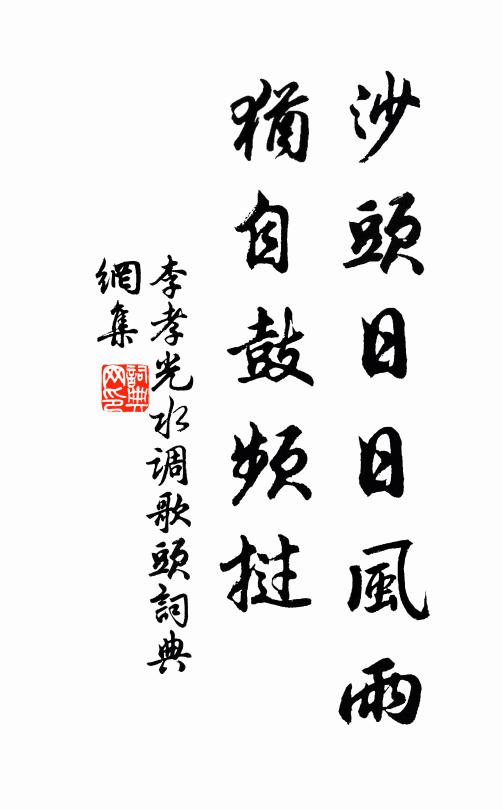 沙頭日日風雨
猶自鼓頻撾
李孝光水调歌頭詞典
網集
詞典
网印